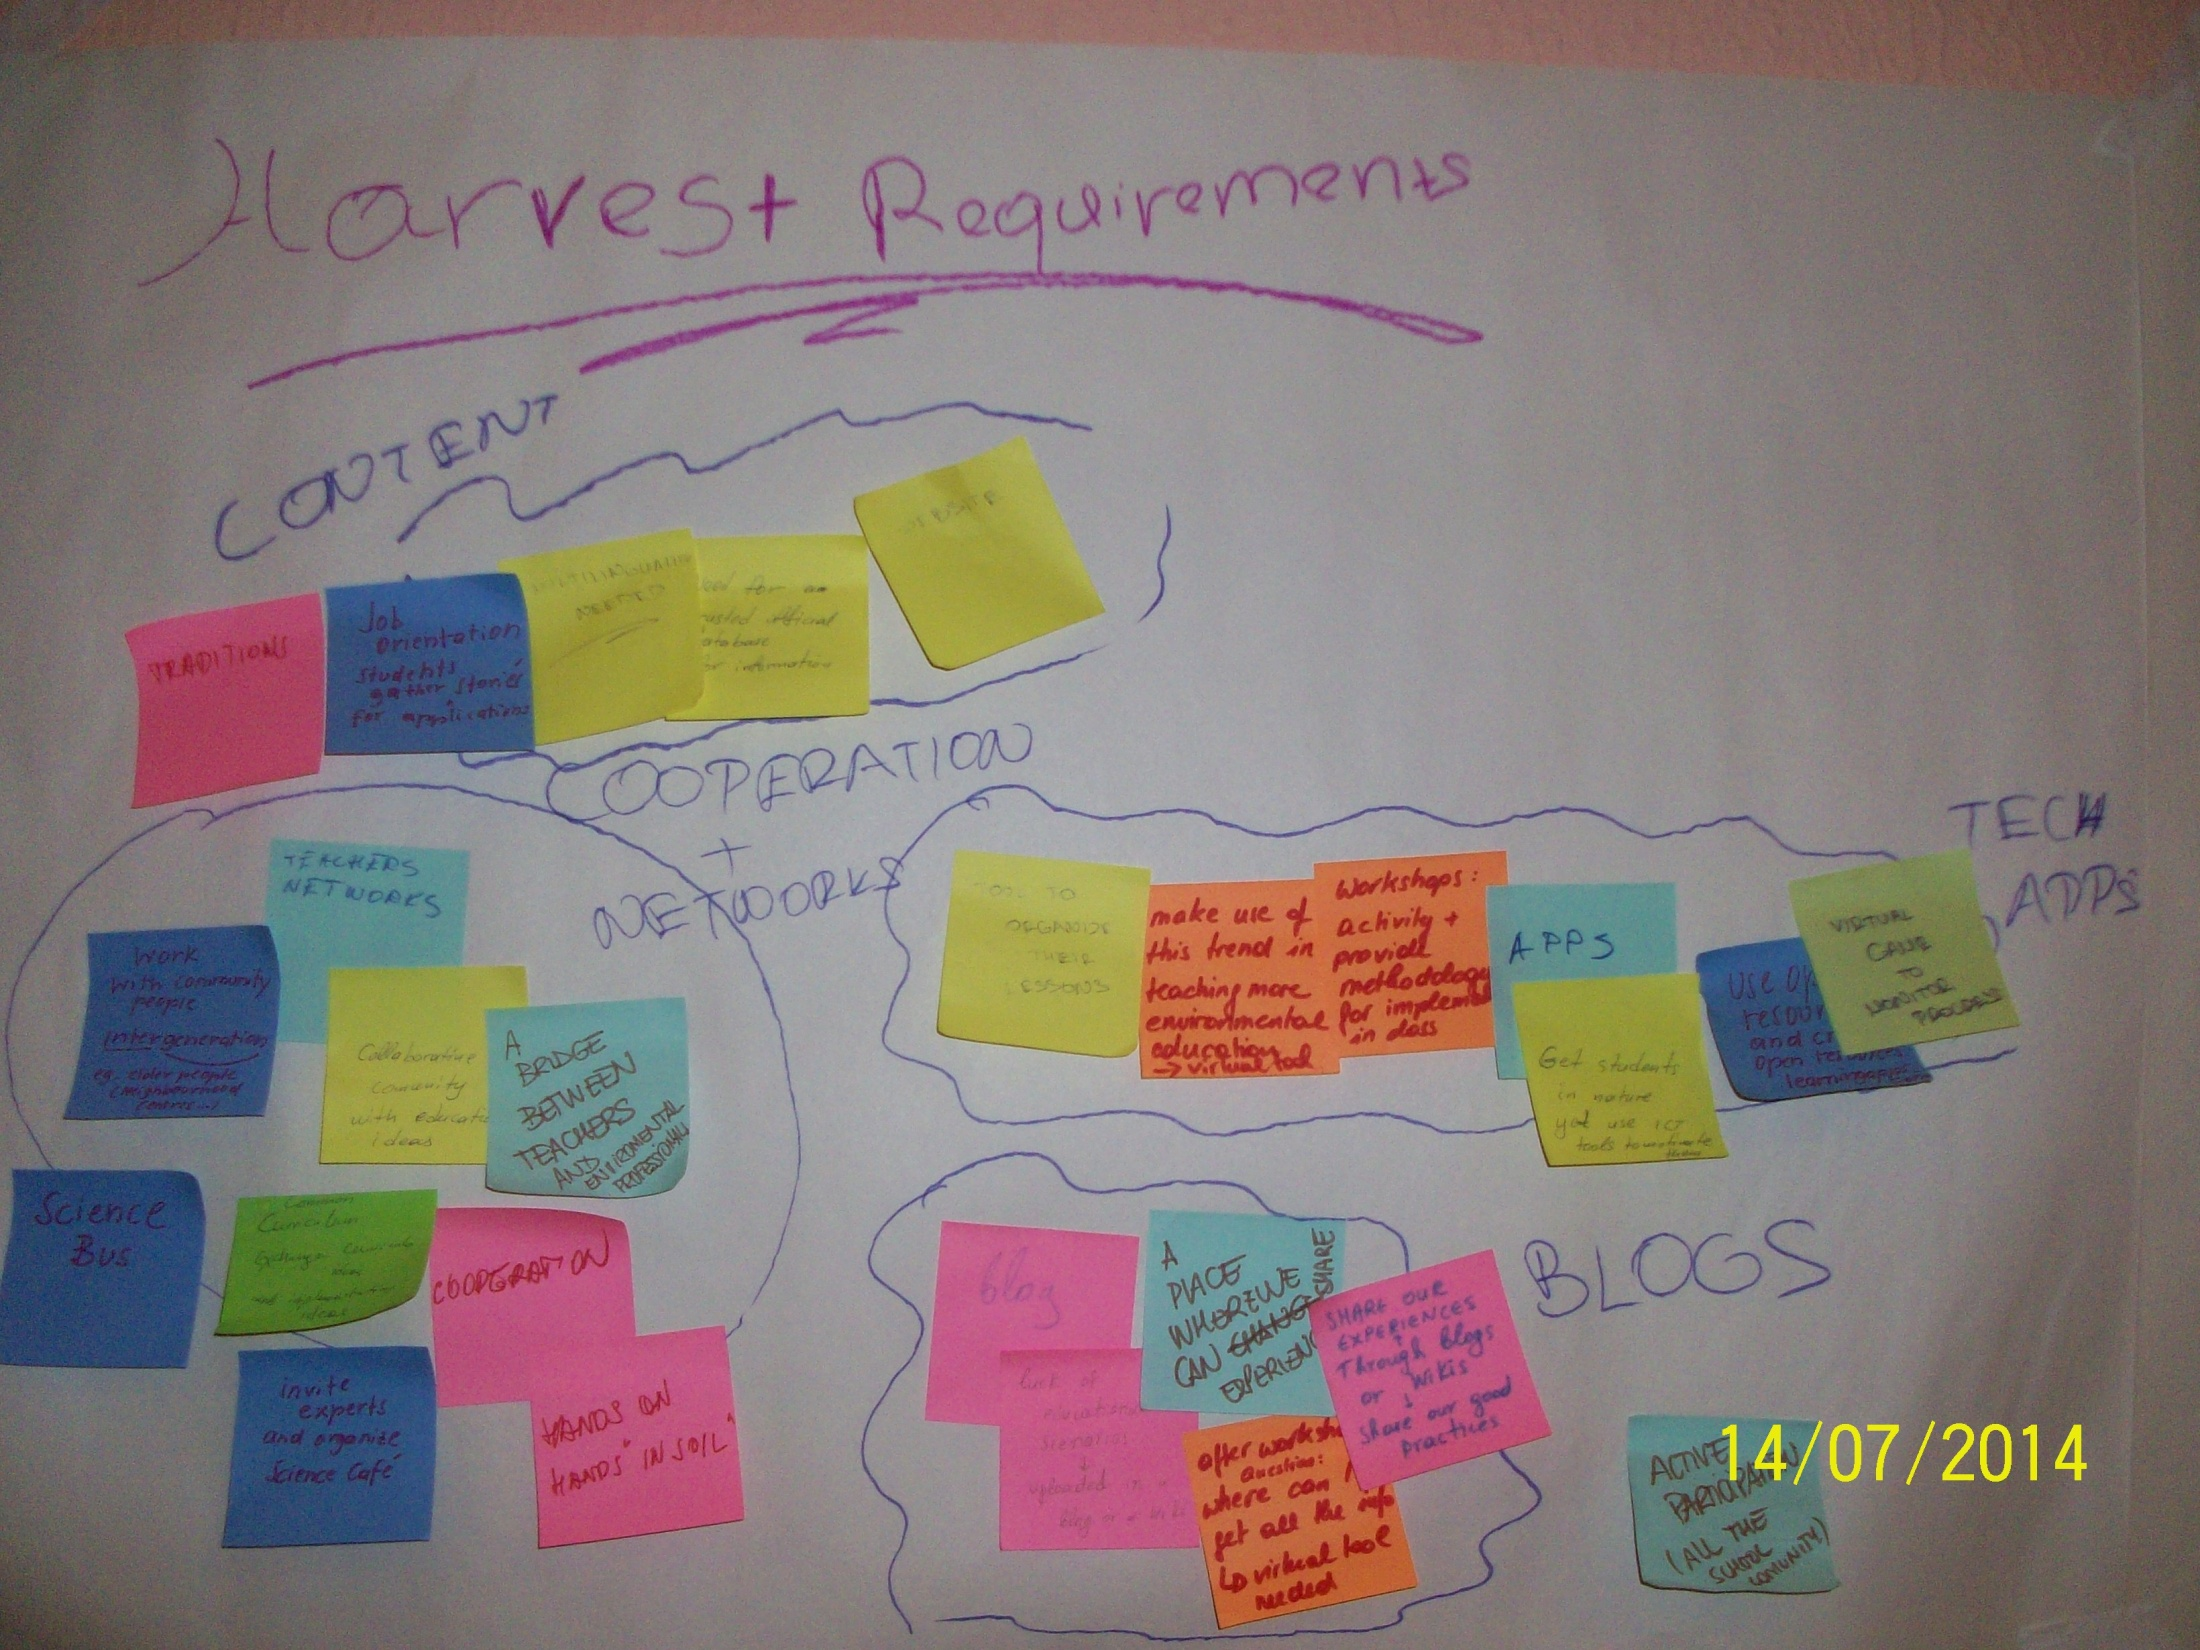 Harvest Requirements
CONTENT
TRADITIONS
Job
orientation
students
gather stories
for applications
NEEDED
for
official
information
COOPERATION
+
NETWORKS
TEACHERS
NETWORKS
Work
with community
people
intergeneration
eg. elder people
(neighbourhood
Collaborative
comunity
with
ideas
A
BRIDGE
BETWEEN
TEACHERS
AND
ENVIROMENTAL
PROFESSIONALS
Science
Bus
Common
Curriculum
ideas
COOPERATION
invite
experts
and organize
Science Café
HANDS ON
HANDS IN SOIL
TECH
APPS
TOOL TO
ORGANIZE
THEIR
LESSONS
make use of
this trend in
teaching more
environmental
education
→ virtual tool
Workshops:
activity +
provide
methodology
for
in class
APPS
Get students
in nature
yet use ICT
tools to motivate
them
use
and
open
VIRTUAL
GAME
TO
MONITOR
PROGRESS
BLOGS
blog
lack of
scenarios
↓
uploaded in
A
PLACE
WHERE WE
CAN SHARE
SHARE OUR
EXPERIENCES
Through blogs
or wikis
↓
share our good
practices
after
question:
where can
get all the info
↳ virtual tool
needed
ACTIVE
PARTICIPATION
(ALL THE
SCHOOL
COMUNITY)
14/07/2014